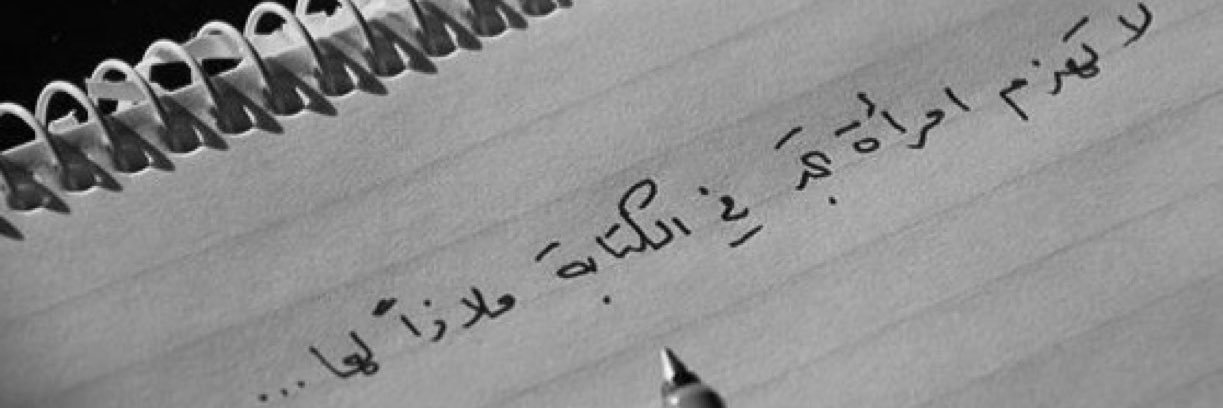 لا تهزم امرأة تجد في الكتابة ملاذاً لها ...